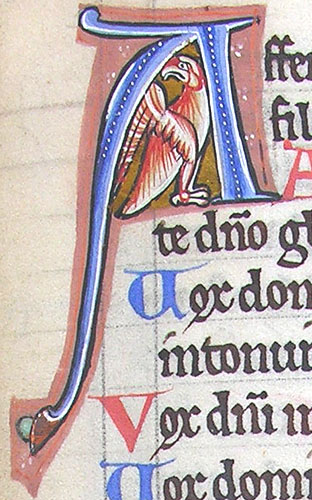 Affe
fil
A
te dn̄o gl
Uox dom
intonui
Vox dn̄i in
Uox domi